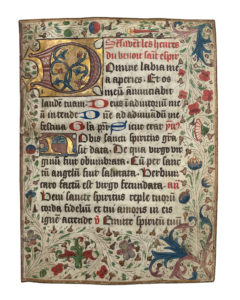 Cy enssuivent les heures
du benoit saint esperit
Domine labia me
a aperies. Et os
meu annunciabit
laude tuam. Deus in adiutoriu me
u intende. Dne ad adiuvandu me
festina. Gloria pri. Sicut erat. ymn
Nobis sancti spiritus gra
sit data. De qua virgo vir
ginu fuit obumbrata. Cu per sanc
tu angelu fuit salutata. Verbum
caro factu est virgo fecundata. an
Veni sancte spiritus reple tuorum
corda fideliu et tui amoris in eis
igne accende. Emitte spiritu tuu